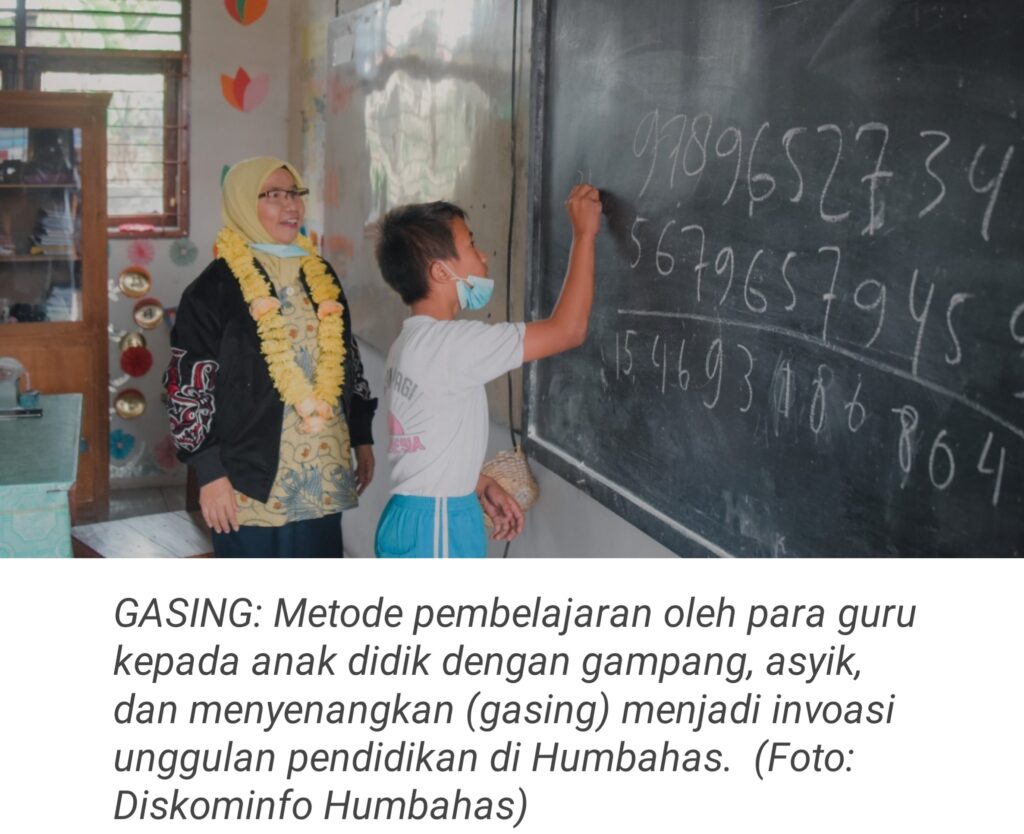 9789652734
5679657945
154693186804
GASING: Metode pembelajaran oleh para guru
kepada anak didik dengan gampang, asyik,
dan menyenangkan (gasing) menjadi invoasi
unggulan pendidikan di Humbahas. (Foto:
Diskominfo Humbahas)